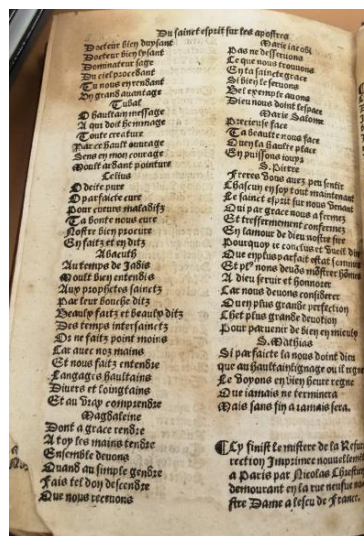 Du sainct esprit sur les apostres
Docteur bien duysant
Docteur bien lysant
Dominateur sage
Du ciel procedant
Tu nous en rendant
Ung grand auantage
Tubal
O haultain message
A qui doit hommage
Toute creature
Par ce hault ouurage
Sens en mon courage
Moult ardant pointure
Celius
O deite pure
O parfaicte cure
Pour cueurs maladifz
Ta bonte nous cure
Nostre bien procure
En faitz et en ditz
Abacuth
Au temps de Jadis
Moult bien entendis
Aux prophetes sainctz
Par leur bouche ditz
Beaulx faitz et beaulx ditz
Des temps intersainctz
Or ne faitz point moins
Car auec noz mains
Et nous faitz entendre
Langages haultains
Diuers et loingtains
Et au vray comprendre
Magdaleine
Dont a grace rendre
A toy les mains tendre
Ensemble deuons
Quand au simple gendre
Fais tel don descendre
Que nous receuons
Marie iacobi
Pas ne desseruons
Ce que nous trouuons
En ta saincte grace
Si bien te seruons
Bel exemple auons
Dieu nous doint lespace
Marie Salome
Precieuse face
Ta beaulte nous face
Quen la haulte place
En puissons iouyr
S. Pierre
Freres vous auez peu sentir
Chascun en soy tout maintenant
Le sainct esprit sur nous venant
Qui par grace nous a fermez
Et tresfermement confermez
En lamour de dieu nostre sire
Pourquoy ie conclus et vueil dire
Que en plus parfait estat sommes
Et plꝰ nous deuõs mõstrer hõmes
A dieu seruir et honnorer
Car nous deuons considerer
Quen plus grande perfection
Chet plus grande deuotion
Pour paruenir de bien en mieulx
S. Mathias
Si parfaicte la nous doint dieu
que au haultain lignage ou il regne
Le voyons en bien heure regne
Que iamais ne terminera
Mais sans fin a iamais sera.
¶ Cy finist le mistere de la Resur
rection Imprimee nouuellement
a Paris par Nicolas Chrestien
demourant en la rue neufue no
stre Dame a lescu de France.